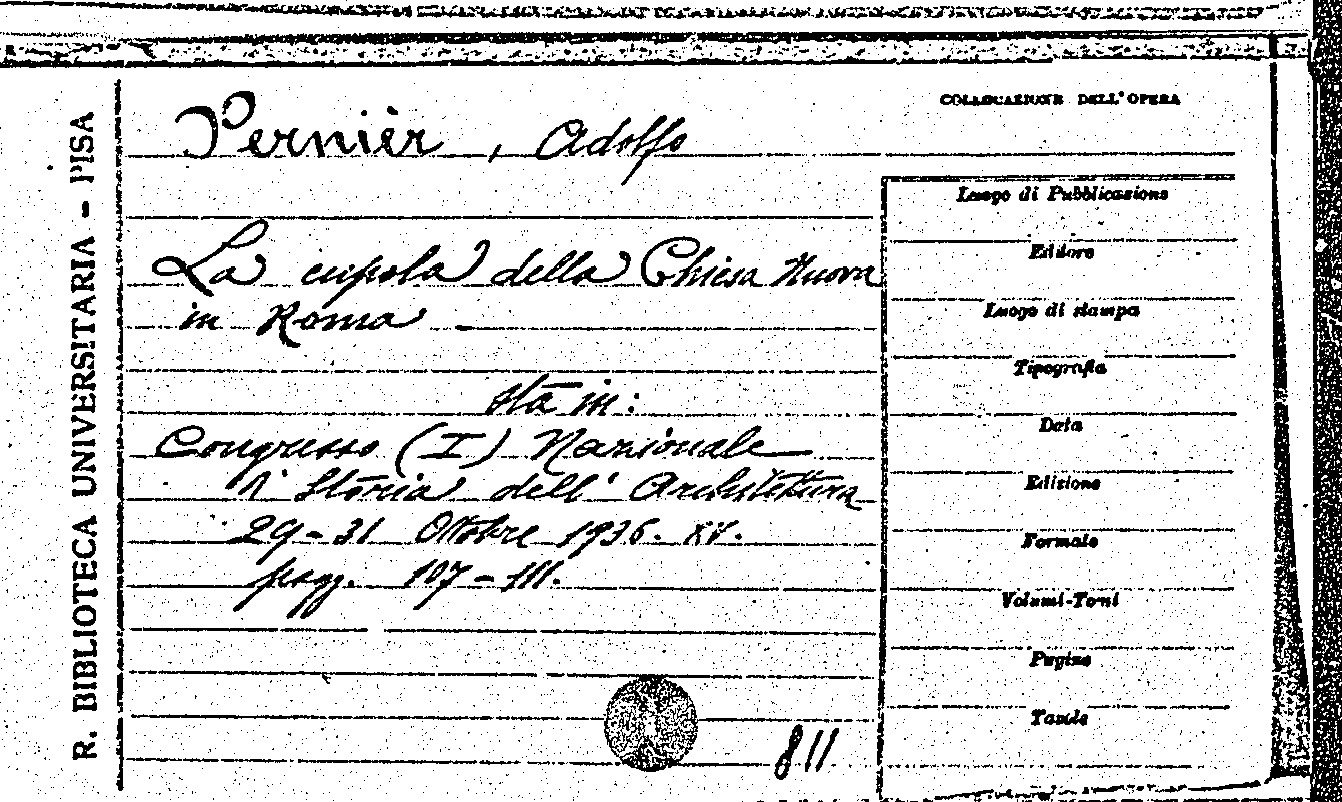 R. BIBLIOTECA UNIVERSITARIA - PISA
COLLOCAZIONE DELL'OPERA
Pernièr, Adolfo
La cupola della Chiesa Nuova
in Roma
sta in:
Congresso (I) Nazionale
d' Storia dell' Architettura
29-31 Ottobre 1936. XV.
pagg. 107-111.
811
Luogo di Pubblicazione
Editore
Luogo di stampa
Tipografia
Data
Edizione
Formato
Volumi-Tomi
Pagine
Tavole